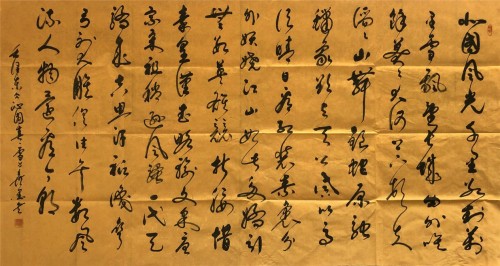 北國風光千里冰封萬
里雪飘望長城内外唯
餘莽莽大河上下顿失
滔滔山舞銀蛇原馳
蠟象欲与天公试比高
须晴日看红装素裹分
外妖娆江山如此多娇引
無数英雄競折腰惜
秦皇漢武略输文采唐
宗宋祖稍逊風骚一代天
骄成吉思汗祗识弯
弓射大雕俱往矣数風
流人物還看今朝
毛泽东词沁园春雪